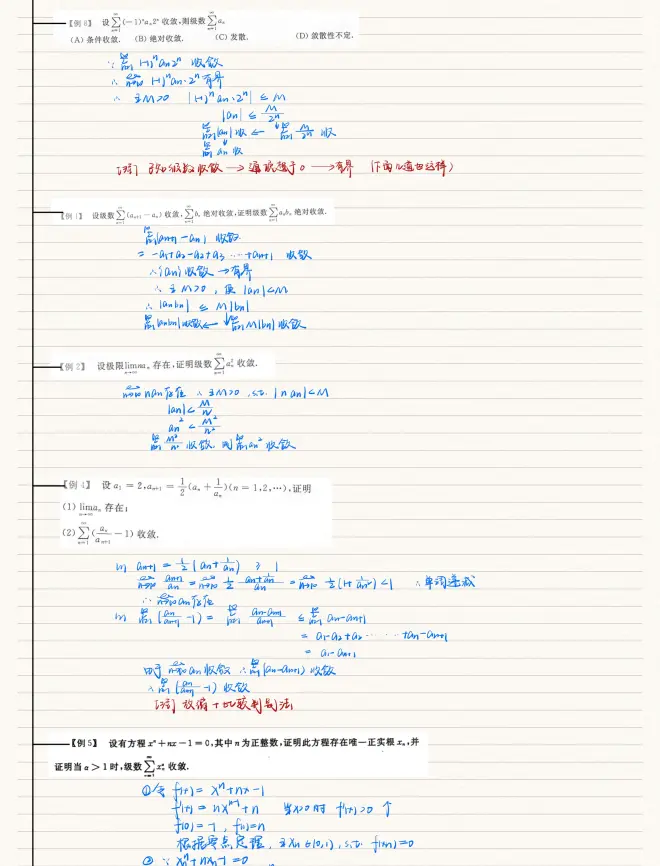 【例 8】 设 $\sum_{n=1}^{\infty}(-1)^n a_n 2^n$ 收敛,则级数 $\sum_{n=1}^{\infty} a_n$
(A) 条件收敛. (B) 绝对收敛. (C) 发散. (D) 敛散性不定.
∵ $\sum_{n=1}^{\infty}(-1)^n a_n 2^n$ 收敛
∴ $\lim_{n\to\infty}(-1)^n a_n \cdot 2^n$ 有界
∴ ∃M>0 $|(-1)^n a_n \cdot 2^n| \le M$
$|a_n| \le \frac{M}{2^n}$
$\sum_{n=1}^{\infty}|a_n|$ 收 ← $\sum_{n=1}^{\infty}\frac{M}{2^n}$ 收
$\sum_{n=1}^{\infty} a_n$ 收
已知级数收敛 → 通项趋于0 → 有界 (下面几道也这样)
【例 1】 设级数 $\sum_{n=1}^{\infty}(a_{n+1}-a_n)$ 收敛, $\sum_{n=1}^{\infty} b_n$ 绝对收敛,证明级数 $\sum_{n=1}^{\infty} a_n b_n$ 绝对收敛.
$\sum_{n=1}^{\infty}(a_{n+1}-a_n)$ 收敛
= $-a_1+a_2-a_2+a_3\cdots+a_{n+1}$ 收敛
∴ {an} 收敛 → 有界
∴ ∃M>0 , 使 |an|<M
∴ |anbn| ≤ M|bn|
$\sum_{n=1}^{\infty}|a_nb_n|$ 收敛 ← $\sum_{n=1}^{\infty}M|b_n|$ 收敛
【例 2】 设极限 $\lim_{n\to\infty} na_n$ 存在,证明级数 $\sum_{n=1}^{\infty} a_n^2$ 收敛.
$\lim_{n\to\infty} na_n$ 存在 ∴ ∃M>0 , s.t. |n an|<M
$|a_n| < \frac{M}{n}$
$a_n^2 < \frac{M^2}{n^2}$
$\sum_{n=1}^{\infty}\frac{M^2}{n^2}$ 收敛, 则 $\sum_{n=1}^{\infty}a_n^2$ 收敛
【例 4】 设 $a_1=2, a_{n+1}=\frac{1}{2}(a_n+\frac{1}{a_n})(n=1,2,\cdots)$,证明
(1) $\lim_{n\to\infty} a_n$ 存在;
(2) $\sum_{n=1}^{\infty}(\frac{a_n}{a_{n+1}}-1)$ 收敛.
(1) $a_{n+1}=\frac{1}{2}(a_n+\frac{1}{a_n}) \ge 1$
$\lim_{n\to\infty}\frac{a_{n+1}}{a_n}=\lim_{n\to\infty}\frac{1}{2}\frac{a_n+\frac{1}{a_n}}{a_n}=\lim_{n\to\infty}\frac{1}{2}(1+\frac{1}{a_n^2})<1$ ∴ 单调递减
∴ $\lim_{n\to\infty}a_n$ 存在
$\sum_{n=1}^{\infty}(\frac{a_n}{a_{n+1}}-1)=\sum_{n=1}^{\infty}\frac{a_n-a_{n+1}}{a_{n+1}} \le \sum_{n=1}^{\infty} a_n-a_{n+1}$
= $a_1-a_2+a_2\cdots\cdots+a_n-a_{n+1}$
= $a_1-a_{n+1}$
由于 $\lim_{n\to\infty}a_n$ 收敛 ∴ $\sum_{n=1}^{\infty}(a_n-a_{n+1})$ 收敛
∴ $\sum_{n=1}^{\infty}(\frac{a_n}{a_{n+1}}-1)$ 收敛
放缩+比较判别法
【例 5】 设有方程 $x^n+nx-1=0$,其中 n 为正整数,证明此方程存在唯一正实根 $x_n$,并
证明当 α > 1 时,级数 $\sum_{n=1}^{\infty} x_n^{\alpha}$ 收敛.
① 令 $f(x)=x^n+nx-1$
$f'(x)=nx^{n-1}+n$ 当x>0时 f'(x)>0 ↑
f(0)=-1 , f(1)=n
根据零点定理, ∃xn∈(0,1), s.t. f(xn)=0
② ∵ $x_n^n+nx_n-1=0$